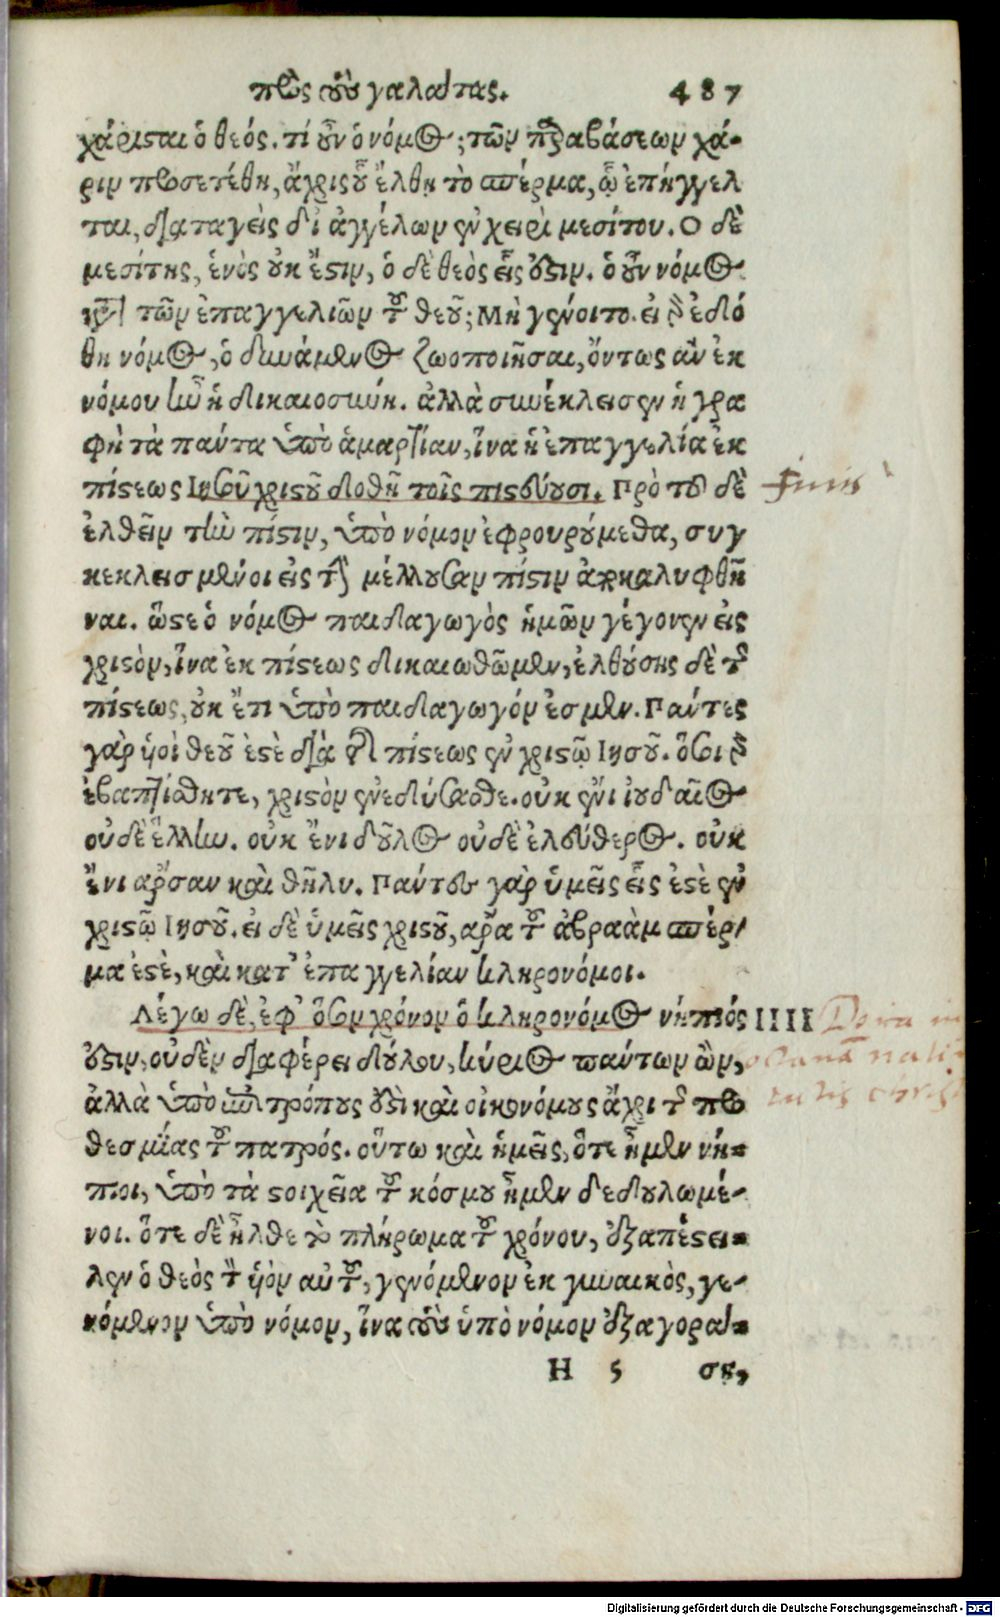 πρὸς τοὺς γαλάτας. 487
χάρισται ὁ θεός. τί οὖν ὁ νόμος; τῶν παραβάσεων χά-
ριν προσετέθη, ἄχρις οὗ ἔλθῃ τὸ σπέρμα, ᾧ ἐπήγγελ
ται, διαταγεὶς δι' ἀγγέλων ἐν χειρὶ μεσίτου. Ο δὲ
μεσίτης, ἑνὸς οὐκ ἔστιν, ὁ δὲ θεὸς εἷς ἐστιν. ὁ οὖν νόμος
κατὰ τῶν ἐπαγγελιῶν τοῦ θεοῦ; Μὴ γένοιτο. εἰ γὰρ ἐδό
θη νόμος, ὁ δυνάμενος ζωοποιῆσαι, ὄντως ἂν ἐκ
νόμου ἦν ἡ δικαιοσύνη. ἀλλὰ συνέκλεισεν ἡ γρα
φὴ τὰ πάντα ὑπὸ ἁμαρτίαν, ἵνα ἡ ἐπαγγελία ἐκ
πίστεως Ιησοῦ χριστοῦ δοθῇ τοῖς πιστεύουσι. Πρὸ τοῦ δὲ
finis
ἐλθεῖν τὴν πίστιν, ὑπὸ νόμον ἐφρουρούμεθα, συγ
κεκλεισμένοι εἰς τὴν μέλλουσαν πίστιν ἀποκαλυφθῆ
ναι. ὥστε ὁ νόμος παιδαγωγὸς ἡμῶν γέγονεν εἰς
χριστὸν, ἵνα ἐκ πίστεως δικαιωθῶμεν, ἐλθούσης δὲ τῆς
πίστεως, οὐκ ἔτι ὑπὸ παιδαγωγόν ἐσμεν. Πάντες
γὰρ ὑοὶ θεοῦ ἐστὲ διὰ τῆς πίστεως ἐν χριστῷ Ιησοῦ. ὅσοι γὰρ
ἐβαπτίσθητε, χριστὸν ἐνεδύσασθε. οὐκ ἔνι ἰουδαῖος
οὐδὲ ἕλλην. οὐκ ἔνι δοῦλος οὐδὲ ἐλεύθερος. οὐκ
ἔνι ἄρσεν καὶ θῆλυ. Πάντες γὰρ ὑμεῖς εἷς ἐστὲ ἐν
χριστῷ Ιησοῦ. εἰ δὲ ὑμεῖς χριστοῦ, ἄρα τοῦ ἀβραὰμ σπέρ
μα ἐστὲ, καὶ κατ' ἐπαγγελίαν κληρονόμοι.
Λέγω δὲ, ἐφ' ὅσον χρόνον ὁ κληρονόμος νήπιός IIII
ἐστιν, οὐδὲν διαφέρει δούλου, κύριος πάντων ὢν,
ἀλλὰ ὑπὸ ἐπιτρόπους ἐστὶ καὶ οἰκονόμους ἄχρι τῆς προ
θεσμίας τοῦ πατρός. οὕτω καὶ ἡμεῖς, ὅτε ἦμεν νή-
πιοι, ὑπὸ τὰ στοιχεῖα τοῦ κόσμου ἦμεν δεδουλωμέ-
νοι. ὅτε δὲ ἦλθε τὸ πλήρωμα τοῦ χρόνου, ἐξαπέστει-
λεν ὁ θεὸς τὸν ὑὸν αὐτοῦ, γενόμενον ἐκ γυναικὸς, γε-
νόμενον ὑπὸ νόμον, ἵνα τοὺς ὑπὸ νόμον ἐξαγορά-
H 5 ση,
Digitalisierung gefördert durch die Deutsche Forschungsgemeinschaft - DFG